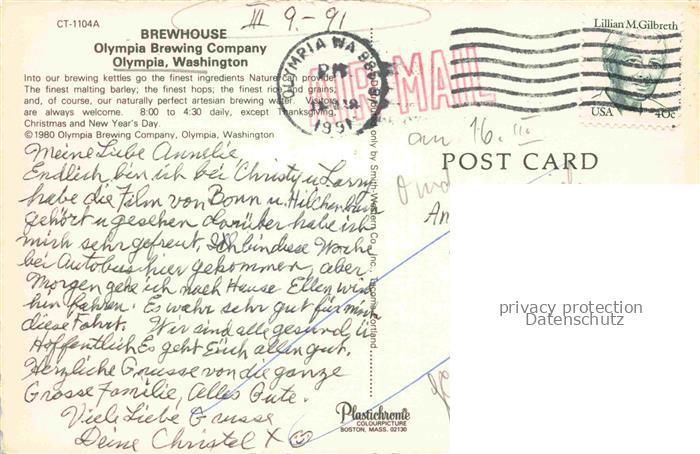 CT-1104A
III 9.-91
BREWHOUSE
Olympia Brewing Company
Olympia, Washington
Into our brewing kettles go the finest ingredients Nature can provide:
The finest malting barley; the finest hops; the finest rice and grains;
and, of course, our naturally perfect artesian brewing water. Visitors
are always welcome. 8:00 to 4:30 daily, except Thanksgiving,
Christmas and New Year's Day.
©1980 Olympia Brewing Company, Olympia, Washington
Meine Liebe Annelie
Endlich bin ich bei Christy u. Larry
habe die Film von Bonn u. Hilchenbach
gehört u gesehen darüber habe ich
mich sehr gefreut. Ich bin diese Woche
bei Autobus hier gekommen, aber
Morgen gehe ich nach Hause Ellen wird
hin fahren. Es wahr sehr gut für mich
diese Fahrt. Wir sind alle gesund, u
Hoffentlich Es geht Euch allen gut.
Herzliche Grusse von die ganze
Grosse Familie, Alles Gute.
Viele Liebe Grusse
Deine Christel X
only by Smith-Western Co., Inc., Tacoma, Portland
Plastichrome
COLOURPICTURE
BOSTON, MASS. 02130
OLYMPIA WA
PM
1991
AIR MAIL
Lillian M. Gilbreth
USA 40c
am 16. III
POST CARD
An
privacy protection
Datenschutz